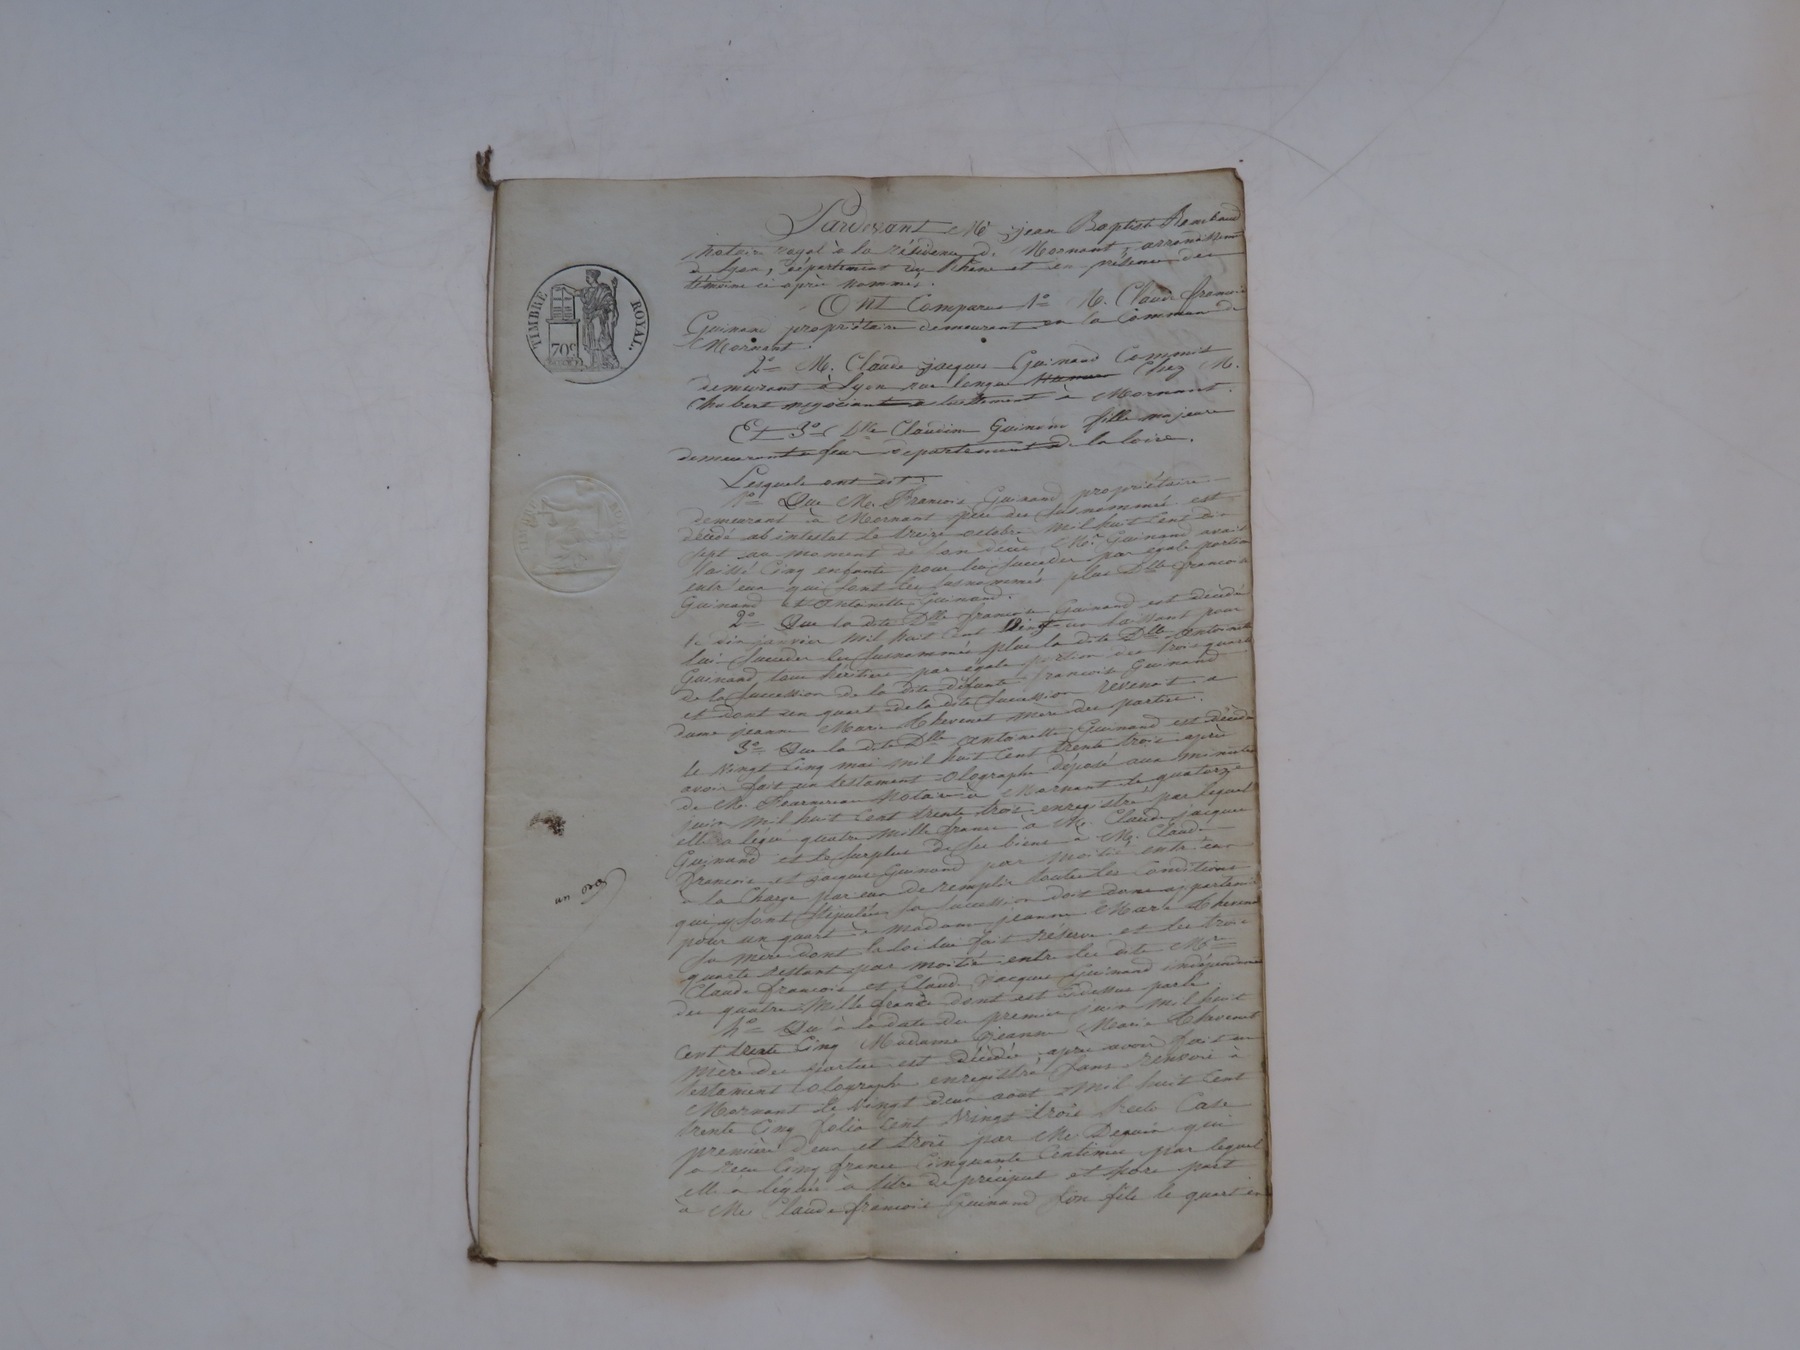 TIMBRE ROYAL
70c
un rôle
Pardevant Me jean Baptist
notaire royal à la résidence de Mornant, arrondissement
de Lyon, département du Rhône et en présence des
témoins ci après nommés.
Ont Comparus 1o M. Claude françois
Guinand propriétaire demeurant en la Commune de
Mornant.
2o M. Claude jacques Guinand Commis
demeurant à Lyon rue longue Chez M.
Chabert négociant actuellement à Mornant.
Et 3o Dlle Claudine Guinand fille majeure
demeurant à feur département de la loire.
Lesquels ont dit:
1o Que Mr François Guinand propriétaire
demeurant à Mornant père des susnommés est
décédé ab intestat le treize octobre mil huit Cent dix
sept au moment de son décès Mr Guinand avait
laissé Cinq enfants pour lui succéder par egale portion
entr'eux qui sont les susnommés plus Dlle francoise
Guinand et Antoinette Guinand.
2o Que la dite Dlle françoise Guinand est décédée
le dix janvier mil huit Cent Vingt un laissant pour
lui succéder les susnommés plus la dite Dlle Antoinette
Guinand tous héritiers par egale portion des trois quarts
de la succession de la dite défunte francoise Guinand
et dont un quart de la dite succession revenoit a
dame jeanne Marie Thevenet mère des parties.
3o Que la dite Dlle Antoinette Guinand est décédée
le Vingt Cinq mai mil huit Cent trente trois après
avoir fait un testament olographe déposé aux minutes
de Me Notaire à Mornant le quatorze
juin mil huit Cent trente trois enregistré par lequel
elle a légué quatre mille francs à Mr Claude jacques
Guinand et le surplus de ses biens à Mr Claude
françois et jacques Guinand par moitié entr'eux
à la Charge par eux de remplir toutes les Conditions
qui y sont stipulées sa succession doit donc appartenir
pour un quart à madame jeanne Marie Thevenet
sa mère dont la loi lui fait réserve et les trois
quarts restant par moitié entre les dits Mrs
Claude françois et Claude jacques Guinand indépendamment
des quatre mille francs dont est ci dessus parlé.
4o Qu'à la date du premier juin mil huit
Cent trente Cinq Madame Jeanne Marie Thevenet
mère des parties est décédée après avoir fait un
testament olographe enregistré sans renvoi à
Mornant le Vingt deux aout mil huit Cent
trente Cinq folio Cent Vingt trois recto Case
première deux et trois par Mr Dequin qui
a recu Cinq francs Cinquante Centimes par lequel
elle a légué à titre de préciput et hors part
à Mr Claude françois Guinand son fils le quart en